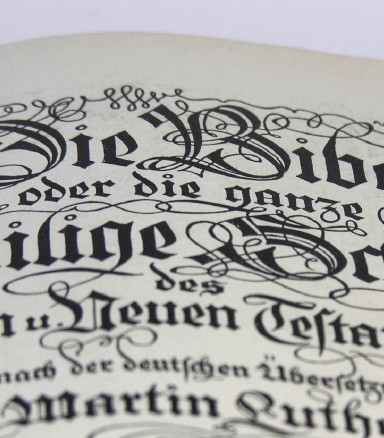 Die Bibe
oder die ganze
eilige Sc
des
n u. Neuen Testa
nach der deutschen Übersetz
Martin Luthe